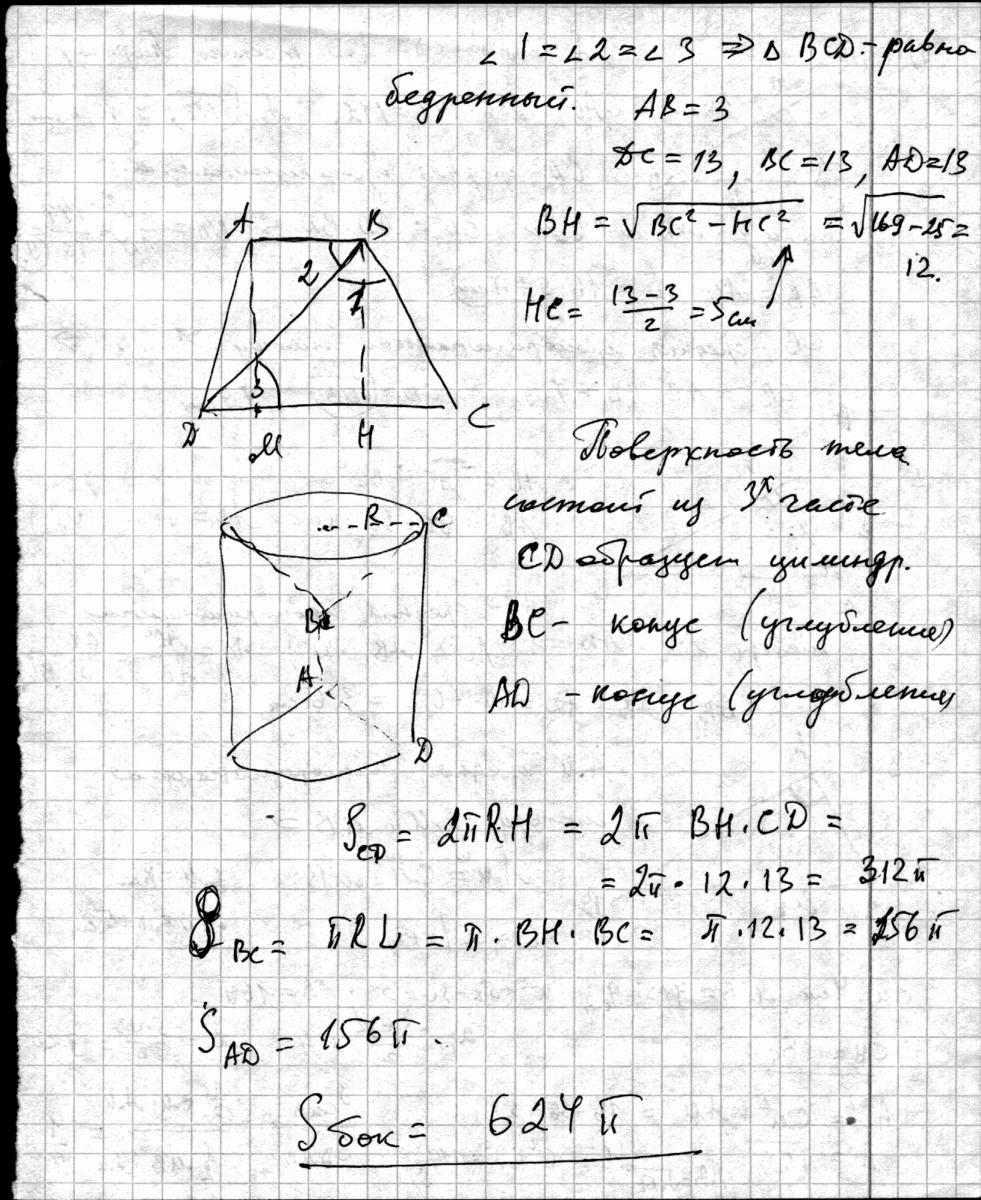 ∠1 = ∠2 = ∠3 ⇒ Δ BCD - равно
бедренный.
AB = 3
DC = 13, BC = 13, AD = 13
BH = √(BC² - HC²) = √(169 - 25) =
12.
HC = (13 - 3)/2 = 5 см
A B
2
1
3
D M H C
Поверхность тела
состоит из 3х часте
CD образует цилиндр.
BC - конус (углубление)
AD - конус (углубление)
R C
B
A
D
S CD = 2πRH = 2π BH · CD =
= 2π · 12 · 13 = 312π
S BC = πRL = π · BH · BC = π · 12 · 13 = 156π
S AD = 156π.
S бок = 624π